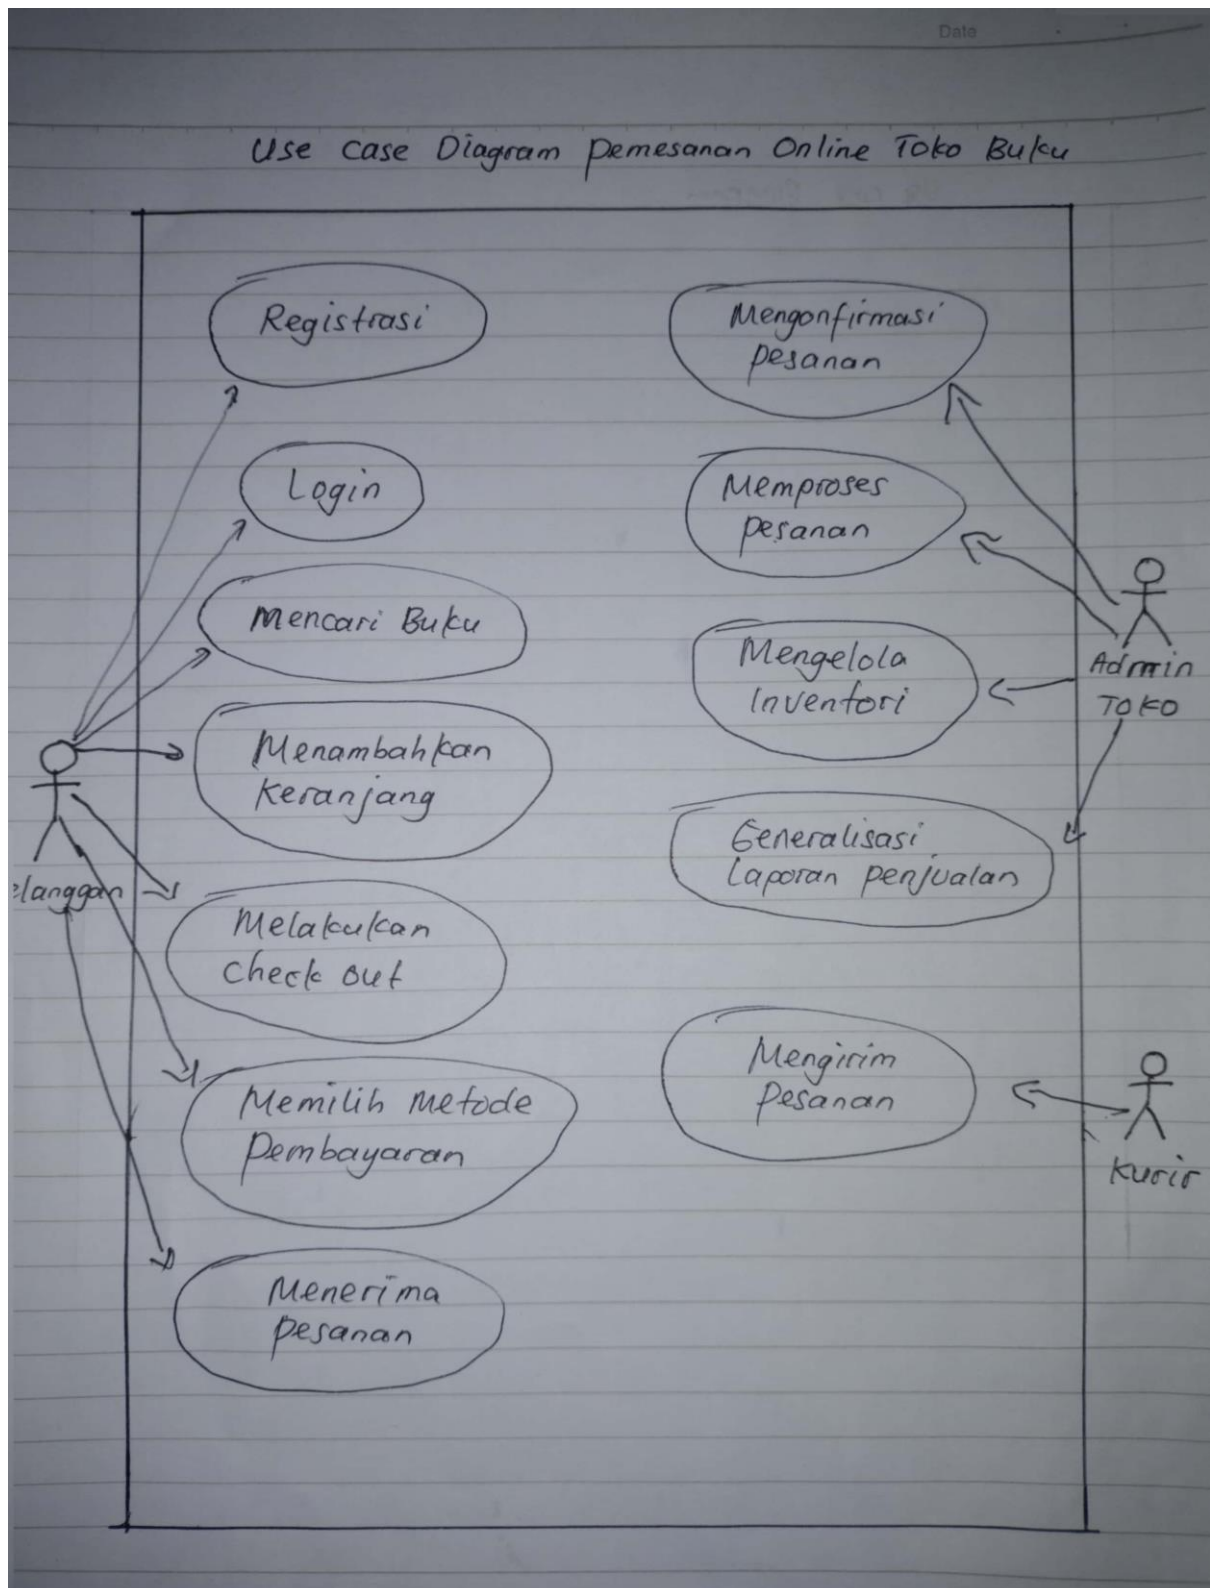 Date
Use case Diagram pemesanan Online Toko Buku
Registrasi
Login
Mencari Buku
Menambahkan
keranjang
elanggan
Melakukan
check out
Memilih Metode
pembayaran
Menerima
pesanan
Mengonfirmasi
pesanan
Memproses
pesanan
Mengelola
Inventori
Admin
TOKO
Generalisasi
Laporan penjualan
Mengirim
pesanan
Kurir